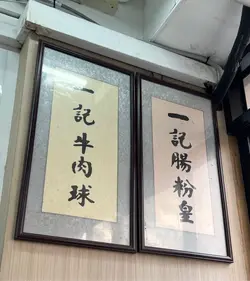 一記牛肉球
一記腸粉皇